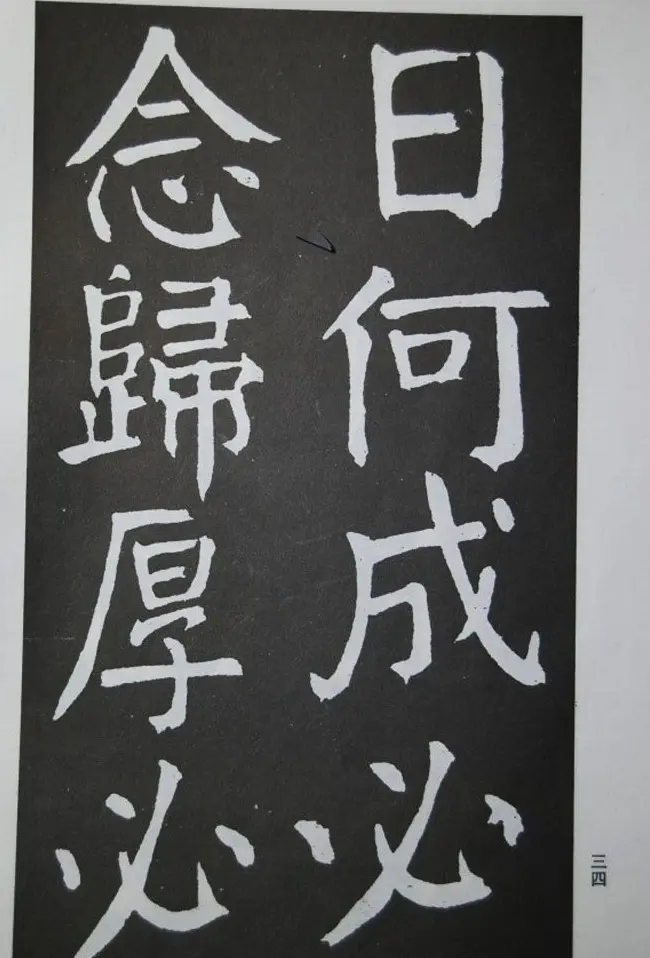 日何成必
念歸厚必
三四